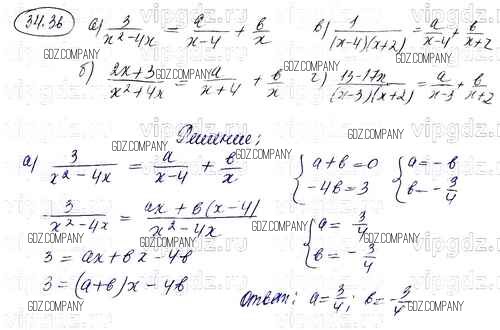 34.36 а) 3/(x²-4x) = a/(x-4) + b/x в) 1/((x-4)(x+2)) = a/(x-4) + b/(x+2)
б) (2x+3)/(x²+4x) = a/(x+4) + b/x г) (13-17x)/((x-3)(x+2)) = a/(x-3) + b/(x+2)
Решение;
а) 3/(x²-4x) = a/(x-4) + b/x { a+b=0 { a=-b
-4b=3 b=-3/4
3/(x²-4x) = (ax+b(x-4))/(x²-4x) { a=3/4
3=ax+bx-4b b=-3/4
3=(a+b)x-4b Ответ: a=3/4; b=-3/4
GDZ.COMPANY
vipgdz.ru